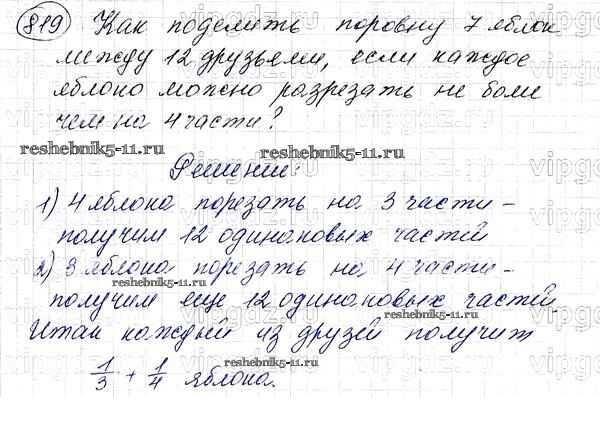 819 Как поделить поровну 7 яблок
между 12 друзьями, если каждое
яблоко можно разрезать не боле
чем на 4 части?
reshebnik5-11.ru
reshebnik5-11.ru
Решение:
1) 4 яблока порезать на 3 части -
получим 12 одинаковых частей
2) 3 яблока порезать на 4 части -
получим еще 12 одинаковых частей.
reshebnik5-11.ru
Итак каждый из друзей получит
1/3 + 1/4 яблока.
reshebnik5-11.ru